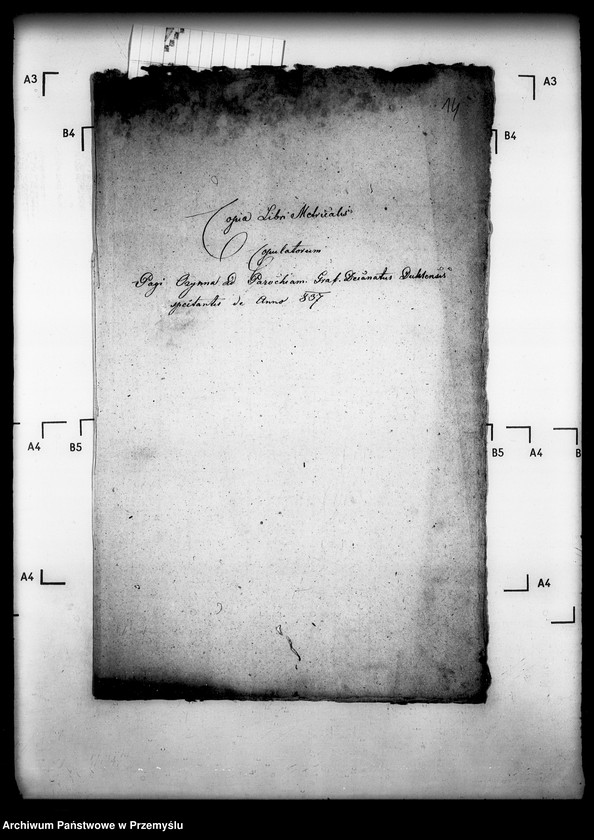 14
Copia Libri Metricalis
Copulatorum
Pagi Ożynna ad Parochiam Graf. Decanatus Duklensis
spectantis de Anno 837
A3
A3
B4
B4
A4
B5
B5
A4
B
A4
A4
Archiwum Państwowe w Przemyślu